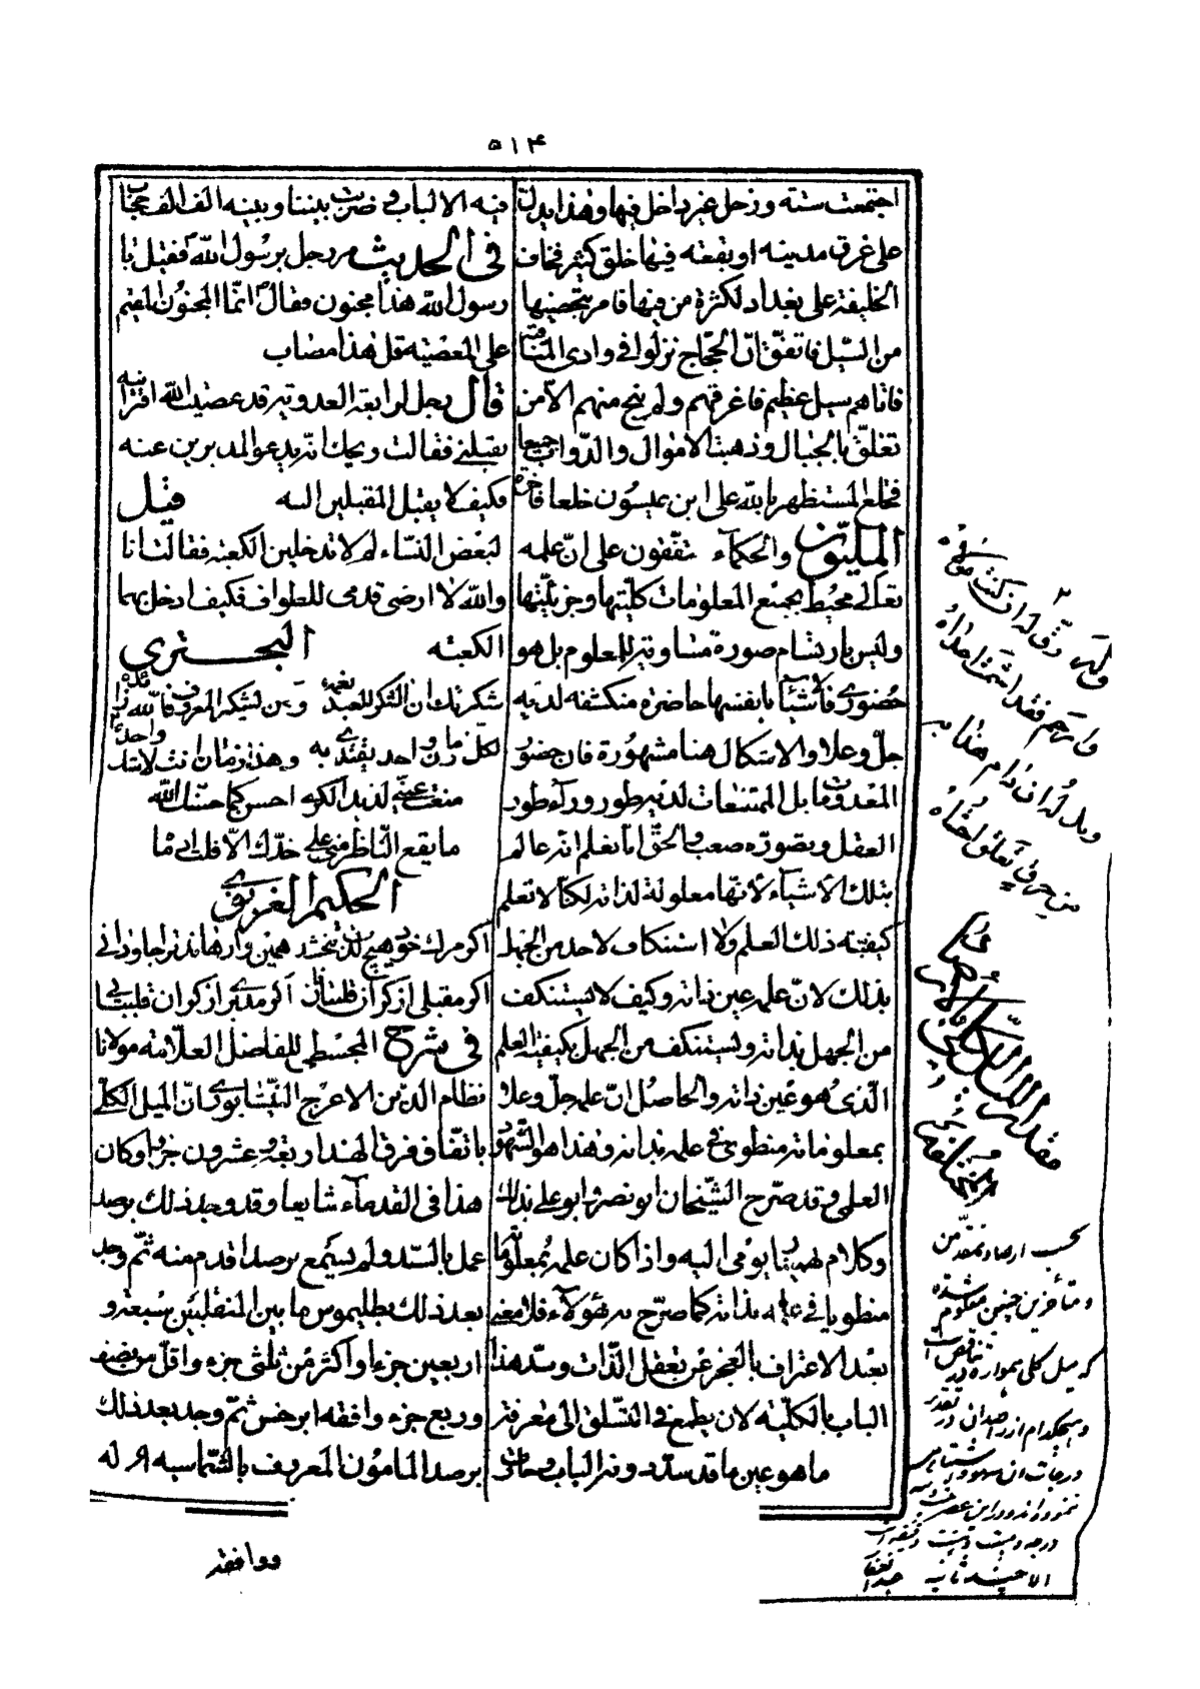 ٥١٤
اجتمعت ستة وزحل غير داخل فيها وهذا يدل
على غرق مدينه او بقعته فيها خلق كثير فخاف
الخليفة على بغداد لكثرة من فيها فامر بتحصينها
من السيل فاتفق ان الحجاج نزلوا فى وادى المناقب
فاتاهم سيل عظيم فاغرقهم ولم ينج منهم الا من
تعلق بالجبال وذهبت الاموال والدواب جميعا
فخلع المستظهر بالله على ابن عيسون خلعا فاخرة
المليون والحكماء متفقون على ان علمه
تعالى محيط بجميع المعلومات كليتها وجزئيتها
وليس بارتسام صورة مساوية للمعلوم بل هو
حضورى فالاشياء بانفسها حاضرة منكشفه لديه
جل وعلا والاشكال هنا مشهورة فان حضور
المعدومات بل الممتنعات لديه طور وراء طور
العقل وتصوره صعب والحق انا نعلم انه عالم
بتلك الاشياء لانها معلولة لذاته لكنا لا نعلم
كيفيته ذلك العلم ولا استنكاف لاحد من الجهل
بذلك لان علمه عين ذاته وكيف لا يستنكف
من الجهل بذاته ويستنكف من الجهل بكيفية العلم
الذى هو عين ذاته والحاصل ان علمه جل وعلا
بمعلوماته منطو فى علمه بذاته وهذا هو الشهود
العلمى وقد صرح الشيخان ابو نصر وابو على بذلك
وكلام بهمنيار يومى اليه واذا كان علمه بمعلوماته
منطويا فى علمه بذاته كما صرح به هؤلاء فلا معنى
بعد الاعتراف بالعجز عن تعقل الذات وسد هذا
الباب بالكليه لان يطمع فى التسلق الى معرفة
ما هو عين ما قد سد دونه الباب وحارت
فيه الالباب وضرب بيننا وبينه الف الف حجاب
فى الحديث مر رجل برسول الله ص فقيل يا
رسول الله هذا مجنون فقال ص انما المجنون المقيم
على المعصيه قل هذا مصاب
قال رجل لرابعة العدويه قد عصيت الله افترانيه
يقبلنى فقالت ويحك انه يدعو المدبرين عنه
فكيف لا يقبل المقبلين اليه قيل
لبعض النساء لم لا تدخلين الكعبة فقالت انا
والله لا ارضى قدمى للطواف فكيف ادخل بهما
الكعبه البحترى
شكرتك ان الشكر للعبد نعمة ومن يشكر المعروف فالله زائده
لكل زمان واحد يقتدى به وهذا زمان انت لا شك واحده
منغت عينى لذيذ الكرى احسن كما حسنك الله
ما يقع الناظر منى على خدك الا قلت اى ما
الحكيم الغزنوى
اكر مرك خود هيچ لذت نبخشد همين وارهاند ترا جاودانى
اكر مقبلى از كران قلتبانان اكر مدبرى از كران قلتبانى
فى شرح المجسطى للفاضل العلامه مولانا
نظام الدين الاعرج النيشابورى ان الميل الكلى
باتفاق فرق الهند اربعة وعشرون جزءا وكان
هذا فى القدماء شايعا وقد وجد ذلك برصد
عمل بالسند ولم يسمع برصد اقدم منه ثم وجد
بعد ذلك بطليموس ما بين المنقلبين سبعة و
اربعين جزءا واكثر من ثلثى جزء واقل من نصف
وربع جزء وافقه ابرخس ثم وجد بعد ذلك
برصد المامون المعروف بالشماسيه لا له
ووافقه
مقدار الميل الكلى
بحسب ارصاد متقدمين
ومتأخرين چنين معلوم شده
كه ميل كلى همواره در تناقص است
الا چند ثانيه